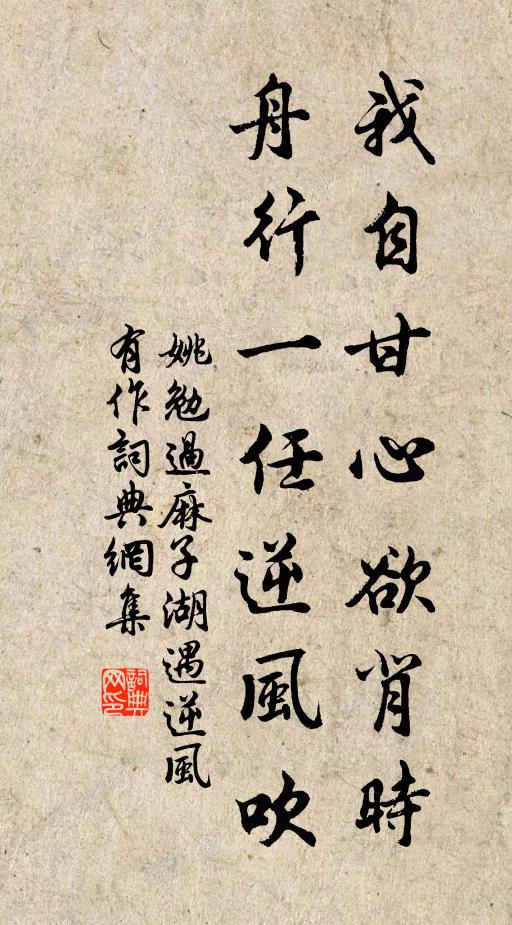 我自甘心欲背時
舟行一任逆風吹
姚勉過麻子湖遇逆風
有作詞典網集
詞典
网印